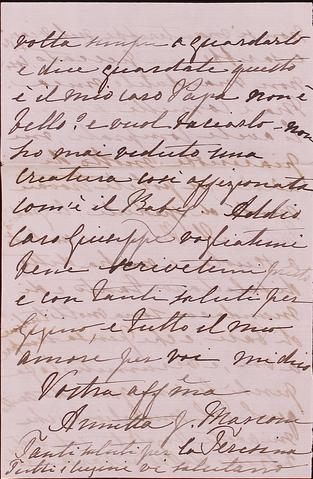 volta sempre a guardarlo
e dice guardate questo
è il mio caro Papà non è
bello? e vuol baciarlo non
ho mai veduto una
creatura così affezionata
com'è il Baby. Addio
caro Giuseppe vogliatemi
bene scrivetemi presto
e con tanti saluti per
Gigino, e tutto il mio
amore per voi mi dico
Vostra affma
Annetta J. Marconi
Tanti saluti per la Teresina
Tutti i cugini vi salutano